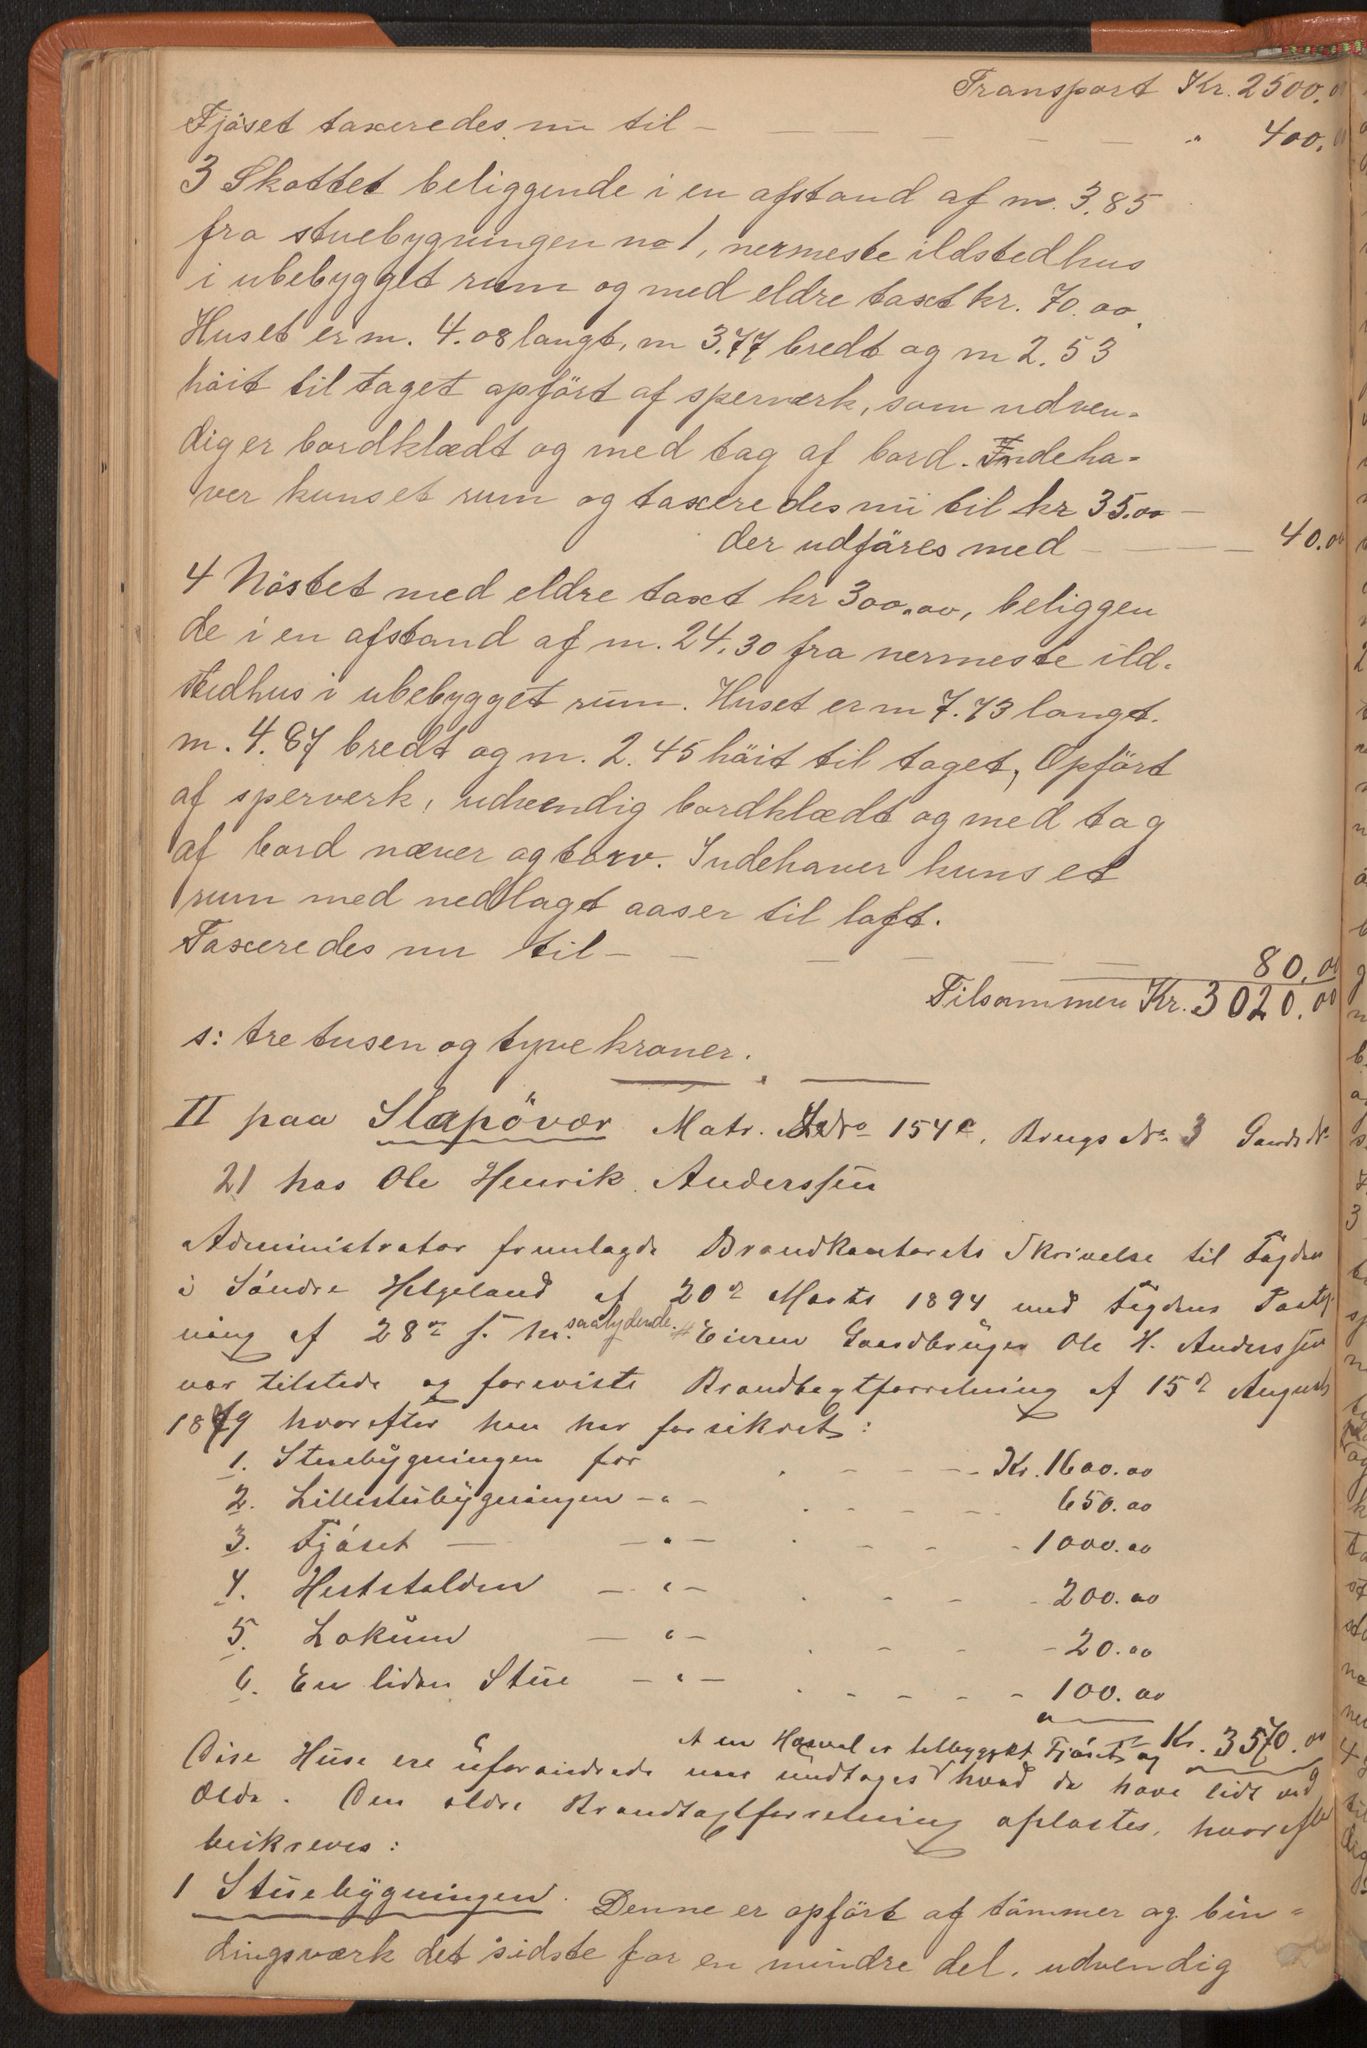 Transport Kr. 2500.00
Fjöset taxeredes nu til - - - - - " 400.00
3 Skottet beliggende i en afstand af m. 3,85
fra stuebygningen no 1, nermeste ildstedhus
i ubebygget rum og med eldre taxt kr. 70.00.
Huset er m. 4.08 langt, m 3.77 bredt og m 2.53
höit til taget opfört af sperverk, som udven-
dig er bordklædt og med tag af bord. Indeha-
ver kuns et rum og taxeredes nu til kr 35.00 -
der udföres med - - - - 40.00
4 Nöstet med eldre taxt kr 300.00, beliggen
de i en afstand af m. 24.30 fra nermeste ild-
stedhus i ubebygget rum. Huset er m 7.73 langt.
m. 4.87 bredt og m. 2.45 höit til taget, Opfört
af sperverk, udvendig bordklædt og med tag
af bord næver og torv. Indehaver kuns et
rum med nedlagt aaser til loft.
Taxeredes nu til - - - - - - 80.00
Tilsammen Kr. 3020.00
s: tre tusen og tyve kroner.
II paa Slapövær Matr. No 154c, Brugs No 3 Gaards No
21 hos Ole Henrik Anderssen
Administrator fremlagde Brandkontorets Skrivelse til Fogden
i Söndre Helgeland af 20de Marts 1894 med Fogdens Paateg
ning af 28de s. m. saalydende. # Eieren Gaardbruger Ole H. Anderssen
var tilstede og foreviste Brandtagtforretning af 15de August
1879 hvorefter han har forsikret:
1. Stuebygningen for . - - - Kr. 1600.00
2. Lillestubygningen - " - . - - - 650.00
3. Fjöset - - " - . - - - 1000.00
4. Heststalden - " - . - - - 200.00
5. Lokum - " - . - - - 20.00
6. En liden Stue - " - . - - - 100.00
Kr. 3570.00
at en Hasvel er tilbygget Fjöset og
Disse Huse ere uforandrede naar undtages hvad de have lidt ved
Ælde. Den ældre Brandtagtforretning oplæstes, hvorefter
beskreves:
1 Stuebygningen. Denne er opfört af tömmer og bin-
dingsværk det sidste for en mindre del, udvendig